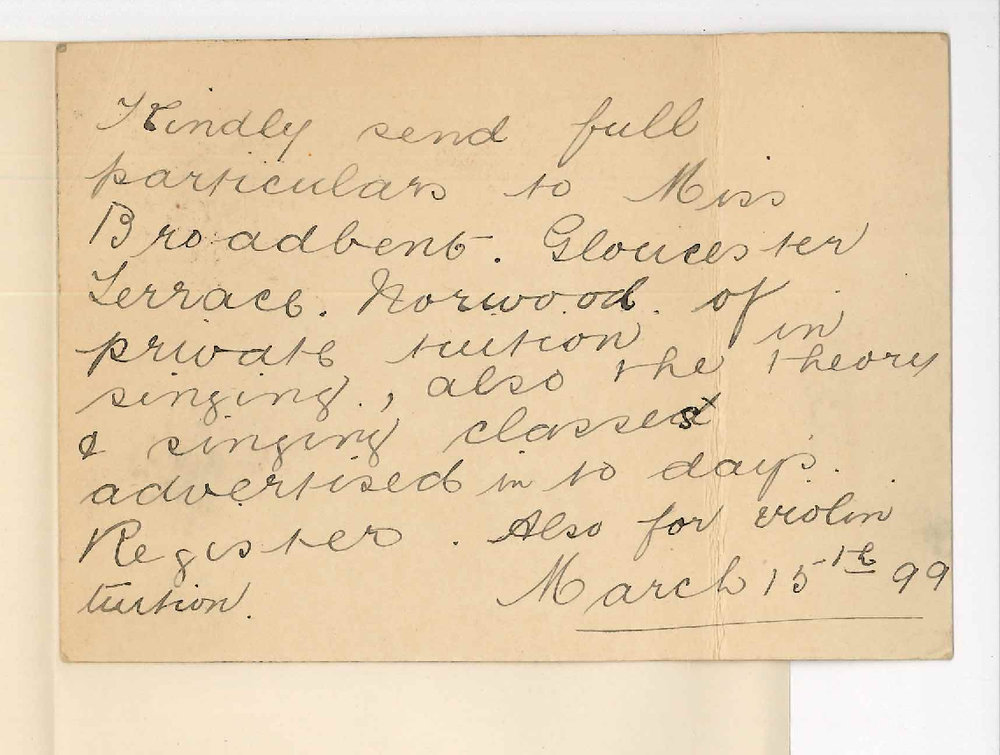 Kindly send full
particulars to Miss
Broadbent. Gloucester
Terrace. Norwood. of
private tuition in
singing, also the theory
& singing classes
advertised in to days.
Register. Also for violin
tuition.
March 15th 99